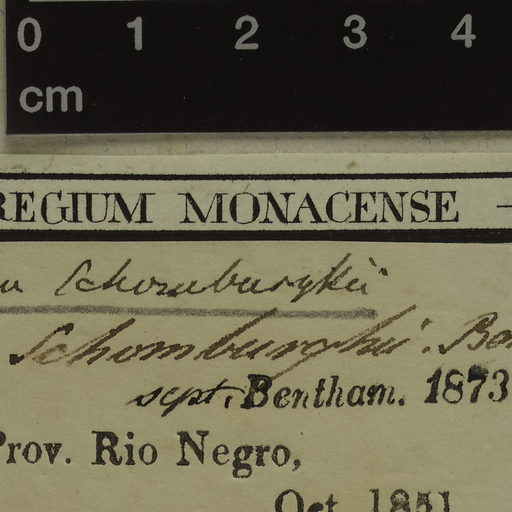 0 1 2 3 4
cm
REGIUM MONACENSE –
Schomburgkii
Schomburghii. Ben
sept. Bentham. 1873
Prov. Rio Negro,
Oct. 1851